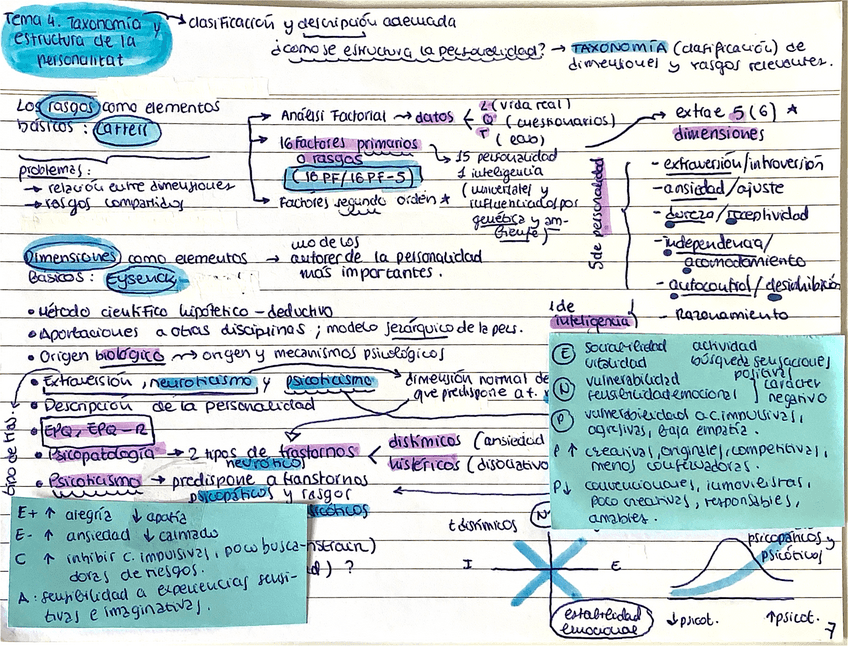 Tema 4. Taxonomía y
estructura de la
personalitat
→ clasificación y descripción adecuada
¿cómo se estructura la personalidad? → TAXONOMÍA (clasificación) de
dimensiones y rasgos relevantes.
Los rasgos como elementos
básicos: Cattell
problemas:
→ relación entre dimensiones
→ rasgos compartidos
Análisi Factorial → datos
L (vida real)
Q (cuestionarios)
T (
16 Factores primarios
o rasgos
(16 PF/16 PF-5)
15 personalidad
1 inteligencia
(universales y
influenciados por
genética y am-
biente)
Factores segundo orden *
→ extrae 5 (6) *
dimensiones
5 de personalidad
- extraversión/introversión
- ansiedad/ajuste
- dureza/receptividad
- independencia/
acomodamiento
- autocontrol/desinhibición
1 de
inteligencia
- Razonamiento
Dimensiones como elementos
Básicos: Eysenck
→ uno de los
autores de la personalidad
más importantes.
• Método científico hipotético-deductivo
• Aportaciones a otras disciplinas; modelo jerárquico de la pers.
• Origen biológico → origen y mecanismos psicológicos
• Extraversión, neuroticismo y psicoticismo
dimensión normal de
que predispone a t.
• Descripción de la personalidad
• EPQ, EPQ-R
• Psicopatología → 2 tipos de trastornos
neuróticos
distímicos (ansiedad
histéricos (disociativo
• Psicoticismo → predispone a transtornos
psicopáticos y rasgos
psicóticos
tipo de tras.
E sociabilidad actividad
vitalidad búsqueda sensaciones
positivas
N vulnerabilidad carácter
sensibilidad emocional negativo
P vulnerabilidad a c. impulsivas,
agresivas, baja empatía.
P ↑ creativas, originales, competitivas,
menos conservadoras.
P ↓ convencionales, inmovilistas,
poco creativas, responsables,
amables.
E+ ↑ alegría ↓ apatía
E- ↑ ansiedad ↓ calmado
C ↑ inhibir c. impulsivas, poco busca-
doras de riesgos.
A: sensibilidad a experiencias sensi-
tivas e imaginativas.
) ?
t distímicos
N
I E
estabilidad
emocional
psicopáticos y
psicóticos
↓ psicot. ↑ psicot.
7